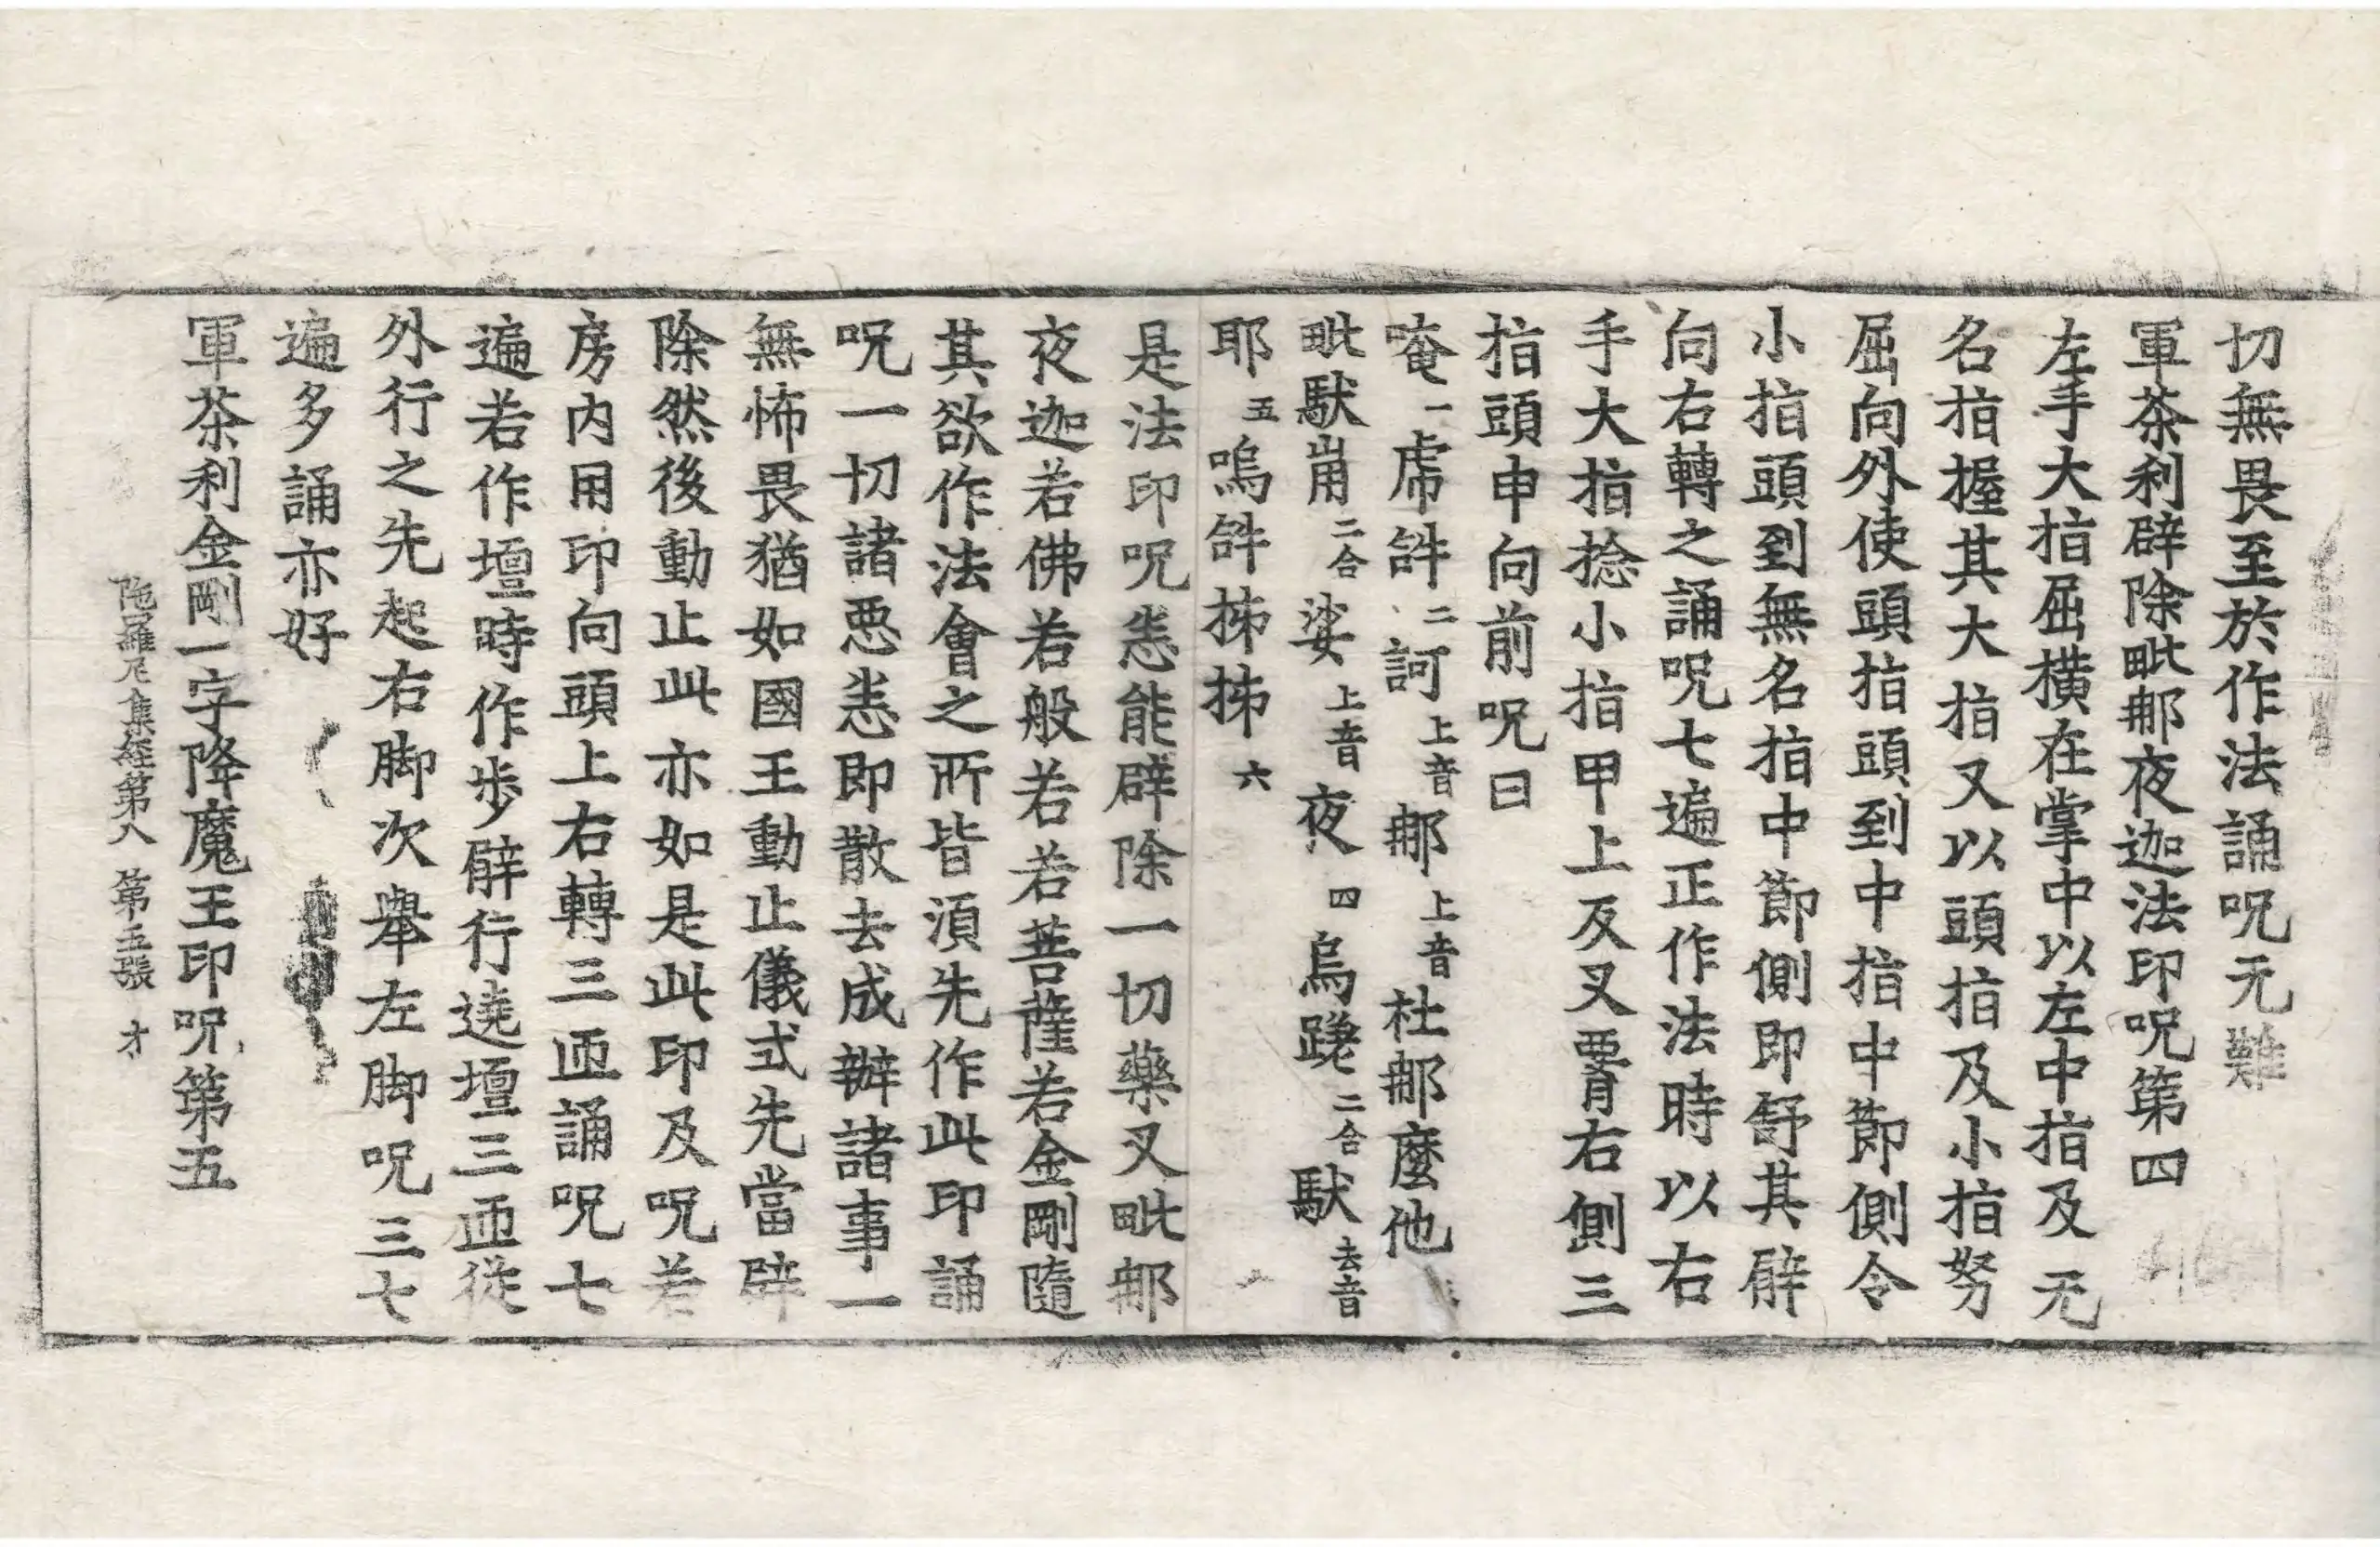 切無畏至於作法誦呪无難
軍荼利辟除毗那夜迦法印呪第四
左手大指屈橫在掌中以左中指及无
名指握其大指又以頭指及小指努
屈向外使頭指頭到中指中節側令
小指頭到無名指中節側即舒其臂
向右轉之誦呪七遍正作法時以右
手大指捻小指甲上反叉𦝫右側三
指頭申向前呪曰
唵一虎𤙖二訶上音那上音杜那麼他三
毗馱崩二合娑上音夜四烏蹉二合馱去音
耶五嗚𤙖㧗㧗六
是法印呪悉能辟除一切藥叉毗那
夜迦若佛若般若若菩薩若金剛隨
其欲作法會之所皆湏先作此印誦
呪一切諸悪悉即散去成辦諸事一
無怖畏猶如國王動止儀式先當辟
除然後動止此亦如是此印及呪若
房內用印向頭上右轉三匝誦呪七
遍若作壇時作步臂行遶壇三匝從
外行之先起右脚次舉左脚呪三七
遍多誦亦好
軍荼利金剛一字降魔王印呪第五
陁羅尼集經第八 第五張 才